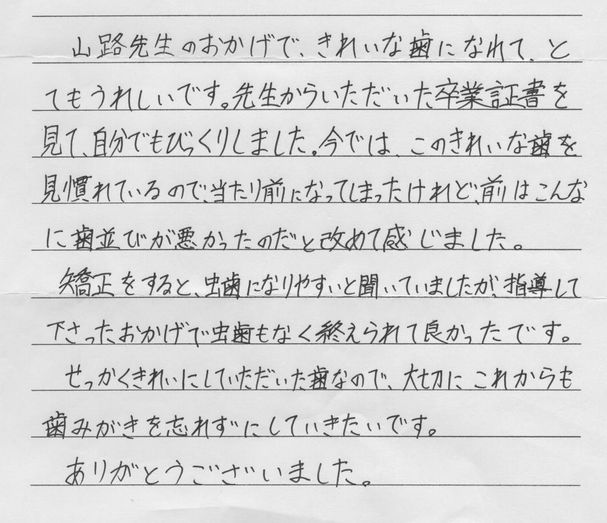 山路先生のおかげで、きれいな歯になれて、と
てもうれしいです。先生からいただいた卒業証書を
見て、自分でもびっくりしました。今では、このきれいな歯を
見慣れているので、当たり前になってしまったけれど、前はこんな
に歯並びが悪かったのだと改めて感じました。
矯正をすると、虫歯になりやすいと聞いていましたが、指導して
下さったおかげで虫歯もなく終えられて良かったです。
せっかくきれいにしていただいた歯なので、大切にこれからも
歯みがきを忘れずにしていきたいです。
ありがとうございました。